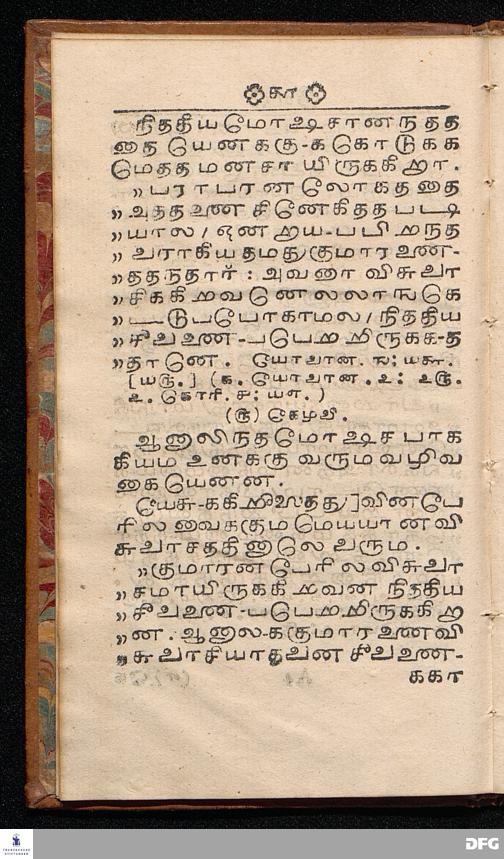 கா
நிததியமோ ஷசானந தத
தை யெனககு-க கொடுகக
மேதத மனசா யிருககிறா.
» பராபரன லோகத தை
» அதத உண சினேகிதத படி
» யால / ஒன றய-பபி றநத
» வராகிய தமது குமார உண-
» ததநதார் : அவனா விசுவா
» சிககிறவ னெலலாங கெ
» டடுபபோகாமல / நிததிய
» சீவ உண-படுபறறிருகக-த
» தானெ. யோவான. ௩: ௰௬.
[௰௫.] (௧. யோவான. ௨: ௨௫.
௨. கொரி. ௪: ௰௭.)
(௫) கேழவி.
ஆனலிநதமோ ஷச பாக
கியம உனககு வருமவழிவ
கை யென ன.
யேசு-ககிறீஸதது]வின பே
ரில வைககும மெயயானவி
சுவாசததினலெ வரும.
» குமாரன பேரிலவிசுவா
» சமாயிருககிறவன நிததிய
» சீவ உண-படுபறறிருககிற
» ன. ஆனல-ககுமார உணவி
» சுவாசியாதவன சீவ உண-
ககா
DFG